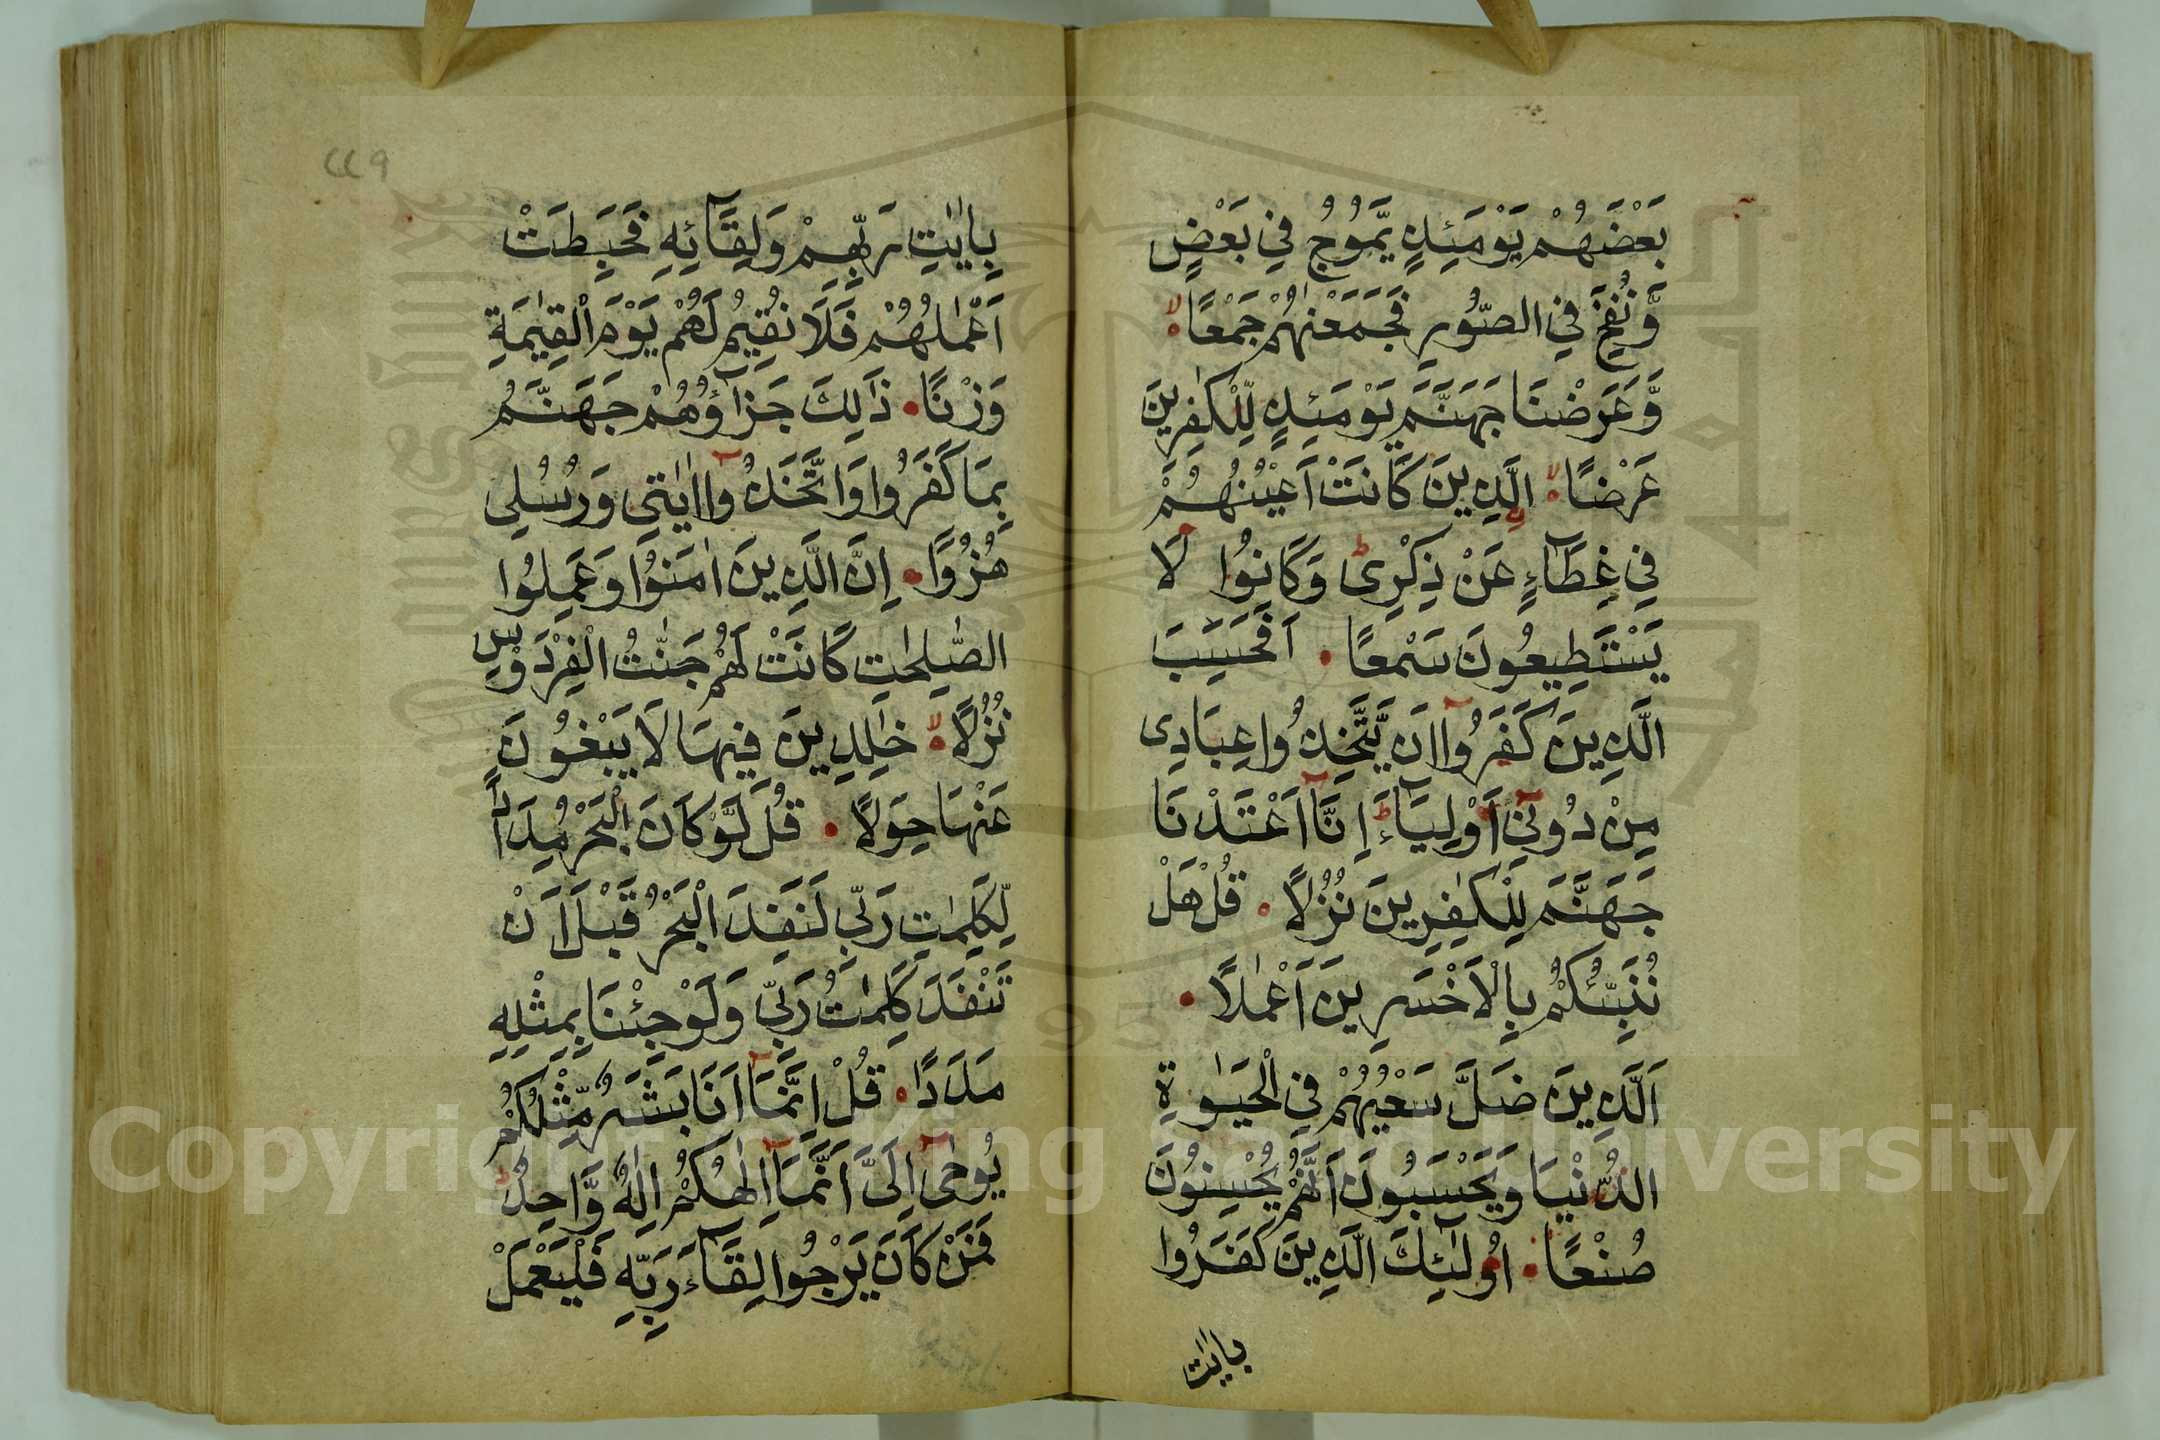 بَعْضَهُمْ يَوْمَئِذٍ يَّمُوْجُ فِي بَعْضٍ
وَّنُفِخَ فِي الصُّورِ فَجَمَعْنٰهُمْ جَمْعًا لا
وَّعَرَضْنَا جَهَنَّمَ يَوْمَئِذٍ لِّلْكٰفِرِينَ
عَرْضًا لا الَّذِينَ كَانَتْ اَعْيُنُهُمْ
فِي غِطَآءٍ عَنْ ذِكْرِى وَكَانُوا لَا
يَسْتَطِيعُونَ سَمْعًا اَفَحَسِبَ
الَّذِينَ كَفَرُوا اَن يَّتَّخِذُوا عِبَادِى
مِنْ دُونِي اَوْلِيَآءَ ط اِنَّا اَعْتَدْنَا
جَهَنَّمَ لِلْكٰفِرِينَ نُزُلًا قُلْ هَلْ
نُنَبِّئُكُمْ بِالْاَخْسَرِينَ اَعْمٰلًا
اَلَّذِينَ ضَلَّ سَعْيُهُمْ فِي الْحَيٰوةِ
الدُّنْيَا وَيَحْسَبُونَ اَنَّهُمْ يُحْسِنُونَ
صُنْعًا اُولٰٓئِكَ الَّذِينَ كَفَرُوا
بايٰت
٢٢٩
بِاٰيٰتِ رَبِّهِمْ وَلِقَآئِهِ فَحَبِطَتْ
اَعْمٰلُهُمْ فَلَا نُقِيمُ لَهُمْ يَوْمَ الْقِيٰمَةِ
وَزْنًا ذَالِكَ جَزَآؤُهُمْ جَهَنَّمُ
بِمَا كَفَرُوا وَاتَّخَذُوا اٰيٰتِي وَرُسُلِي
هُزُوًا اِنَّ الَّذِينَ اٰمَنُوْا وَعَمِلُوا
الصّٰلِحٰتِ كَانَتْ لَهُمْ جَنّٰتُ الْفِرْدَوْسِ
نُزُلًا لا خٰلِدِينَ فِيهَا لَا يَبْغُونَ
عَنْهَا حِوَلًا قُلْ لَّوْ كَانَ الْبَحْرُ مِدَادًا
لِّكَلِمٰتِ رَبِّي لَنَفِدَ الْبَحْرُ قَبْلَ اَنْ
تَنْفَدَ كَلِمٰتُ رَبِّي وَلَوْ جِئْنَا بِمِثْلِهِ
مَدَدًا قُلْ اِنَّمَا اَنَا بَشَرٌ مِّثْلُكُمْ
يُوحٰى اِلَىَّ اَنَّمَا اِلٰهُكُمْ اِلٰهٌ وَّاحِدٌ
فَمَنْ كَانَ يَرْجُوا لِقَآءَ رَبِّهِ فَلْيَعْمَلْ
Copyright © King Saud University